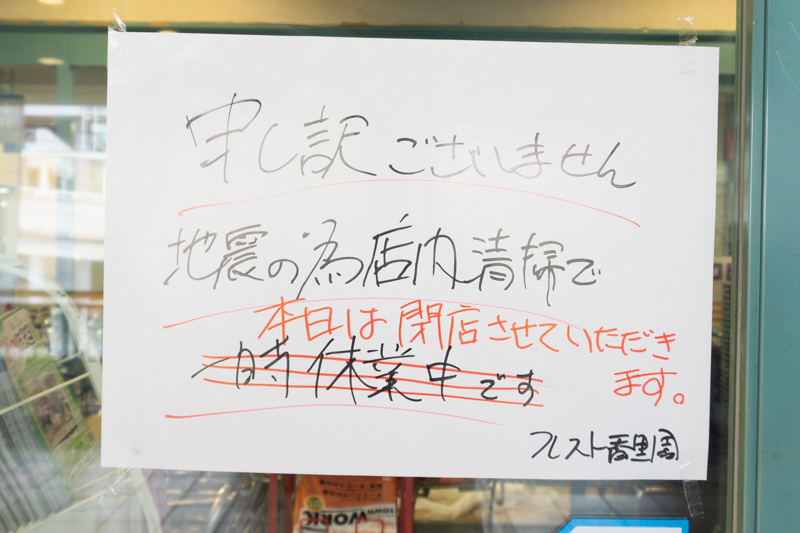 申し訳ございません
地震の為店内清掃で
本日は閉店させていただき
ます。
一時休業中です
フレスト香里園
TOWNWORK